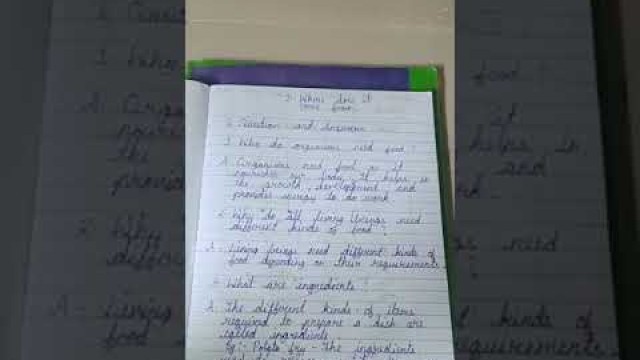 Where does it
come from
Question and Answers
1. Why do organisms need food?
A. Organisms need food as it
nourishes our body. It helps in
the growth, development and
provides energy to do work.
2. Why do all living things need
different kinds of food?
A- Living beings need different kinds of
food depending on their requirements
What are ingredients?
A. The different kinds of items
required to prepare a dish are
called ingredients
Eg:- Potato fry - The ingredients